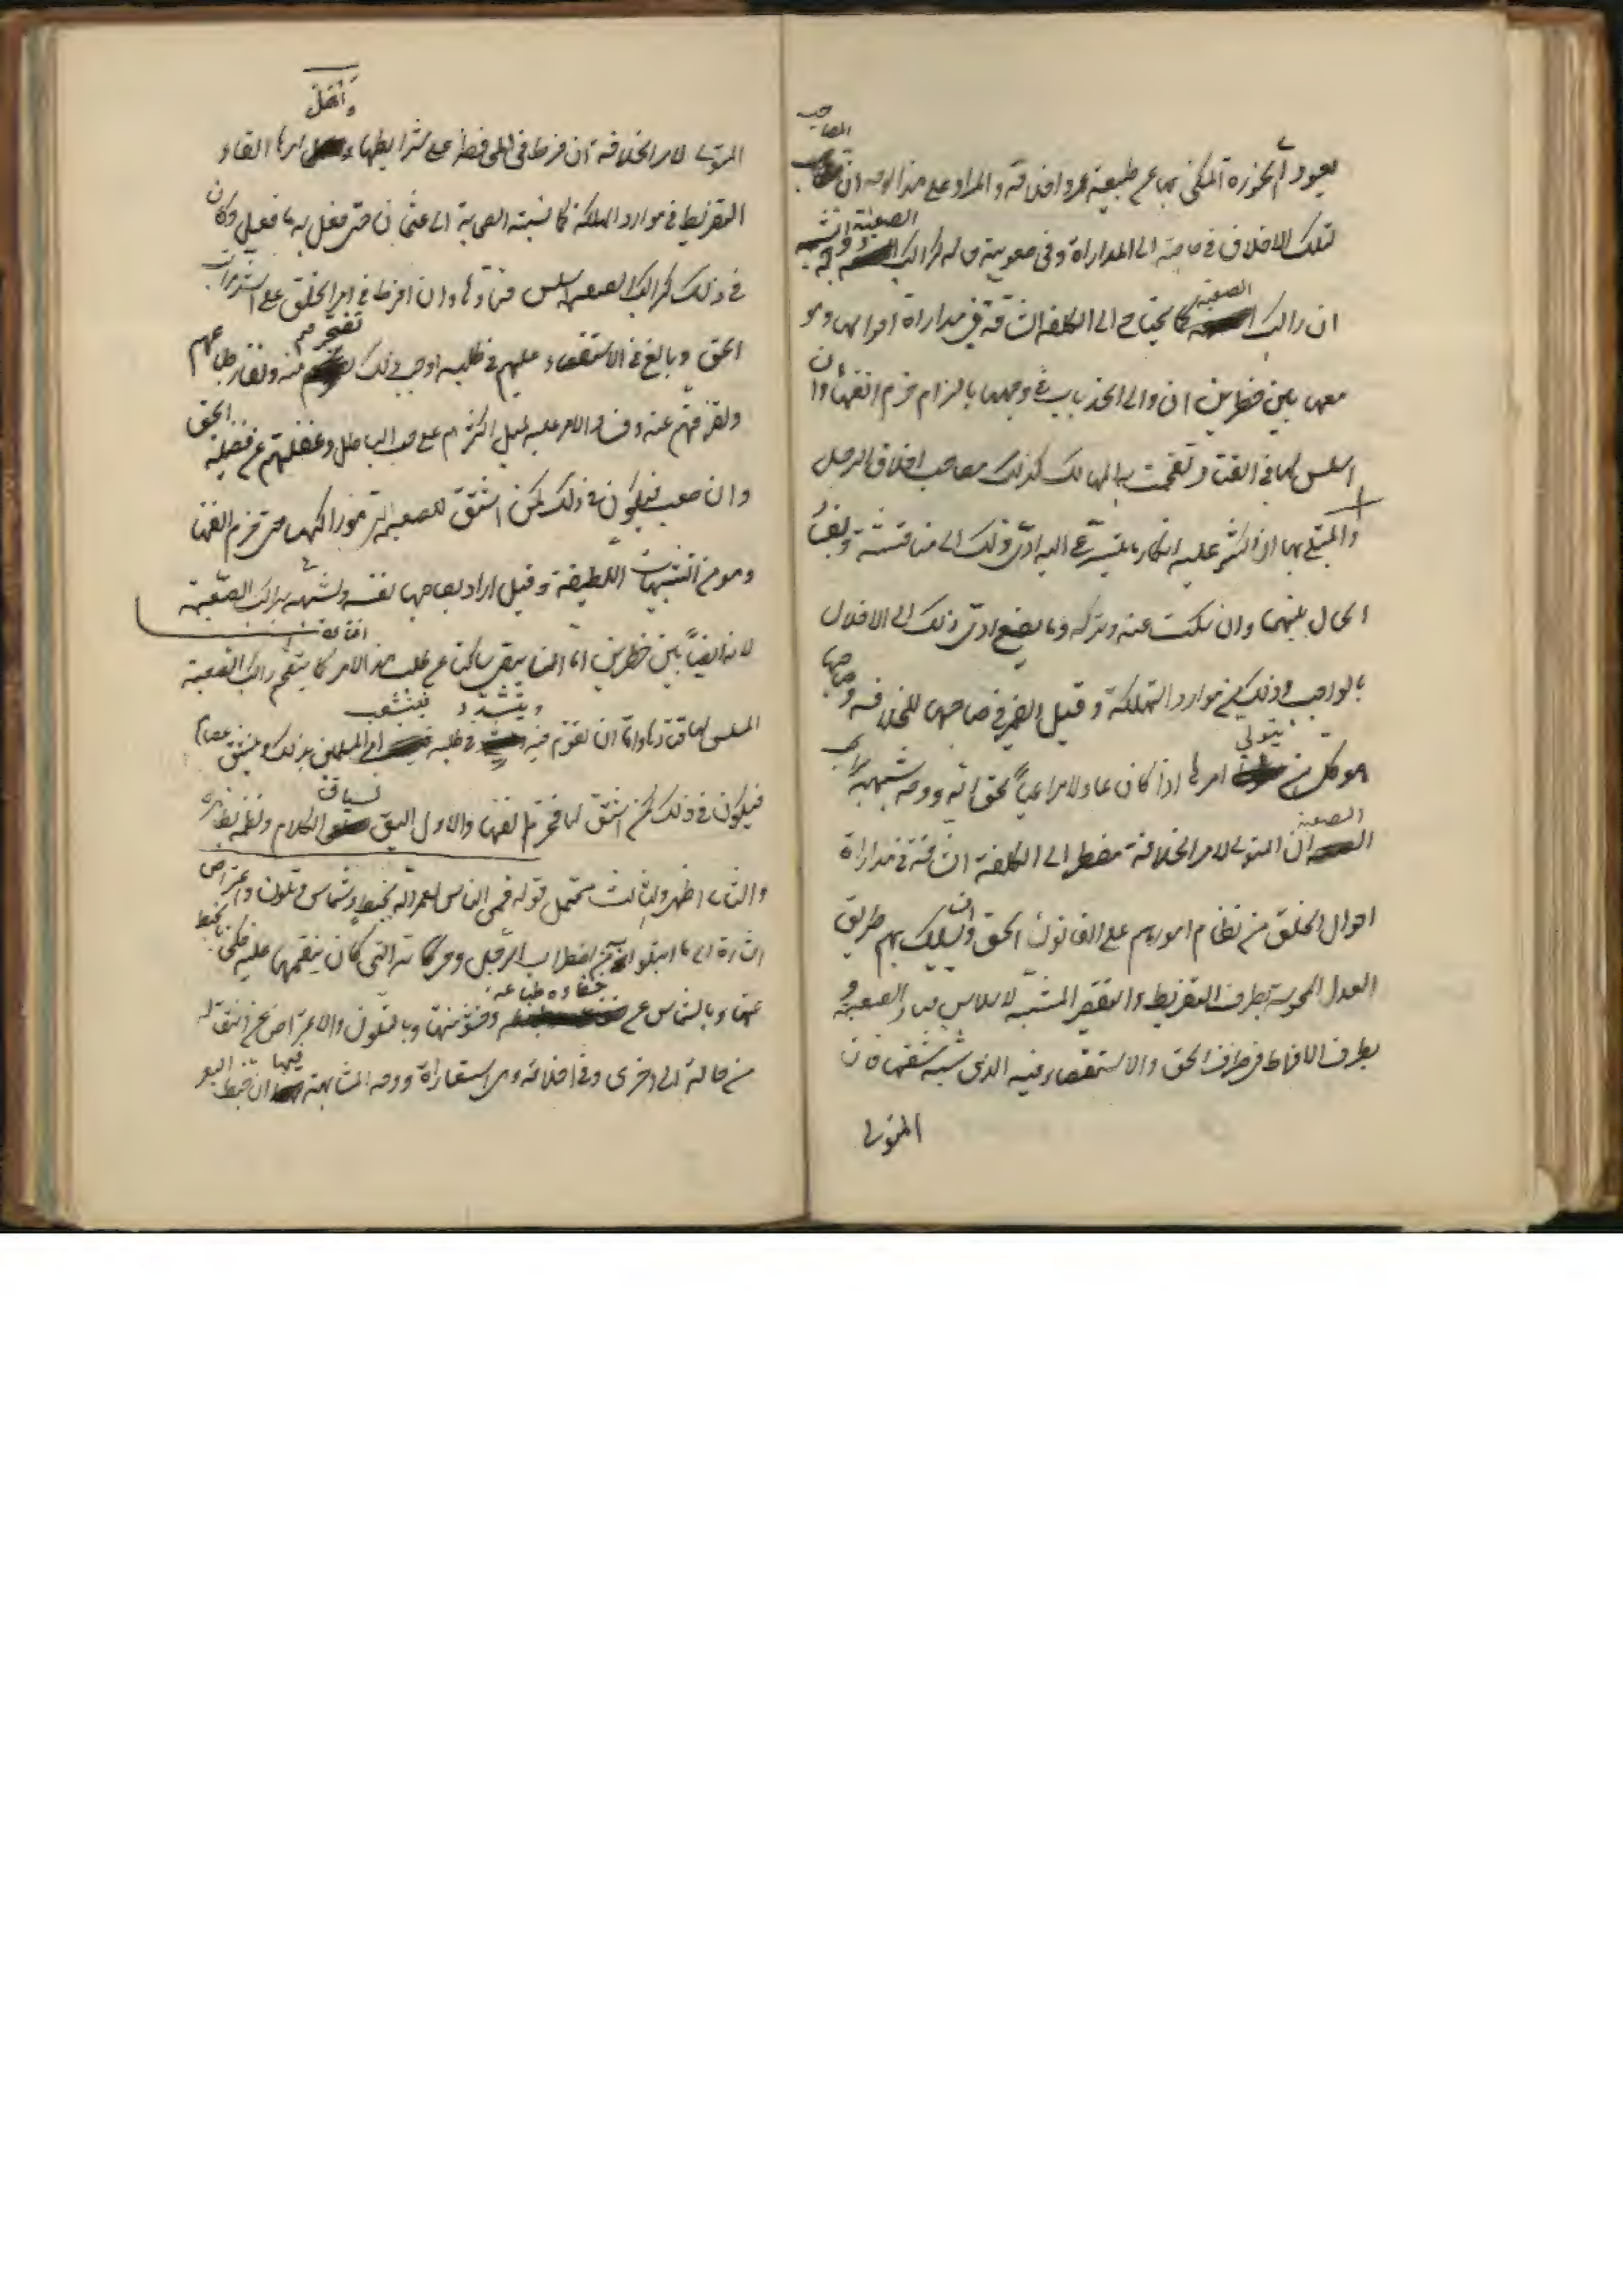 المصاحب
يعود الى الحوزة المكنى بها عن طبيعة عمر واخلاقه والمراد على هذا الوجه ان
لتلك الاخلاق في حاجته الى المداراة وفي صعوبة حاله كراكب الصعبة
ان راكب الصعبة كما يحتاج الى الكلفة الشاقة في مداراة احوالها وهو
معها بين خطرين ان والى الجذبات في وجهها بالزمام خرم انفها وان
اسلس لها في القياد تقحمت به المهالك كذلك مصاحب اخلاق الرجل
والمبتلى بها ان اكثر عليه انكار ما يتسرع اليه ادّى ذلك الى مشاقته وفساد
الحال بينهما وان سكت عنه وتركه وما يصنع ادى ذلك الى الاخلال
بالواجب وذلك من موارد الهلكة وقيل الضمير في صاحبها للخلافة وصاحبها
هو كل من يتولى امرها اذا كان عادلا مراعياً لحق الله ووجه شبهه براكب
الصعبة ان المتولى لامر الخلافة مضطر الى الكلفة الشاقة في مداراة
احوال الخلق من نظام امورهم على القانون الحق وان يسلك بهم طريق
العدل المحوسة بطرف التفريط والتقصير المشبه لاسلاس قياد الصعبة و
بطرف الافراط في طلب الحق والاستقصاء فيه الذى شبه شنقها فان
المتولى
واهمل
المتولى لامر الخلافة ان فرط في المحافظة على شرايطها امرها القاه
التفريط في موارد الهلكة كما نسبته الصحابة الى عثمان حتى فعل به ما فعل وكان
في ذلك كراكب الصعبة اسلس قيادها وان افرط في امر الخلق على
الحق وبالغ في الاستقصاء عليهم في طلبه اوجب ذلك تضجرهم منه ونفار طباعهم
وتفرقهم عنه وفساد الامر عليه لميل اكثرهم على حب الباطل وغفلتهم عن فضيلة الحق
وان صعب فيكون في ذلك كمن اشنق للصعبة التي هو راكبها حتى خرم انفها
وهو من التشبيهات اللطيفة وقيل اراد بصاحبها نفسه وشبهه براكب الصعبة
لانه ايضاً بين خطرين اما ان يبقى ساكتا عن طلب هذا الامر كما يتقحم راكب الصعبة
المسلس لها قيادها واما ان تقوم فيه ويتشدد في طلبه فيتشعب امر المسلمين بذلك وينشق عصاهم
فيكون في ذلك كمن اشنق لها فخرم انفها والاول اليق بسياق الكلام ونظمه
والثانى اظهر والثالث محتمل قوله فمنى الناس لعمر الله بخبط وشماس وتلون واعتراض
اشارة الى ما ابتلوا به من اضطراب الرجل وحركاته التى كان ينقمها عليه فكنى بالخبط
عنها وبالشماس عن جفاوة طباعه وخشونتها وبالتلون والاعتراض عن انتقاله
من حالة الى اخرى وفي اخلاقه وهى استعاراة ووجه المشابهة فيها ان خبط البعير